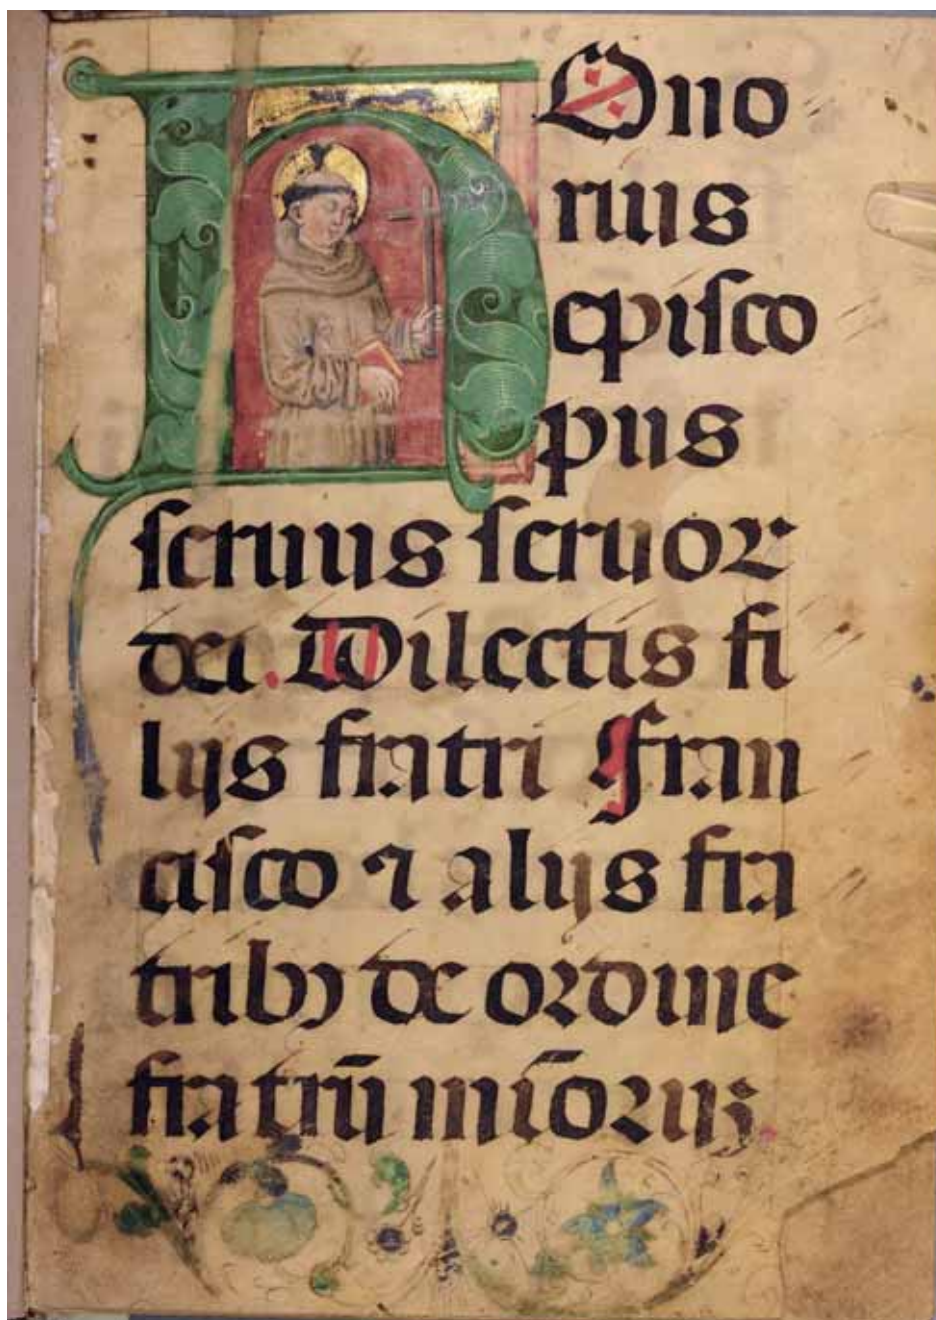 HOno
rius
episco
pus
seruus seruor
dei. Dilectis fi
lijs fratri Fran
cisco ⁊ alijs fra
tribꝫ de ordine
fratrū mīorūꝫ.